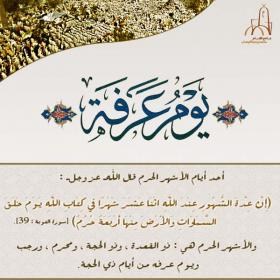 يوم عرفة
أحد أيام الأشهر الحرم قال الله عز وجل :
(إن عدة الشهور عند الله اثنا عشر شهرا في كتاب الله يوم خلق
السماوات والأرض منها أربعة حرم) [سورة التوبة : 39].
والأشهر الحرم هي : ذو القعدة ، وذو الحجة ، ومحرم ، ورجب
ويوم عرفه من أيام ذي الحجة.